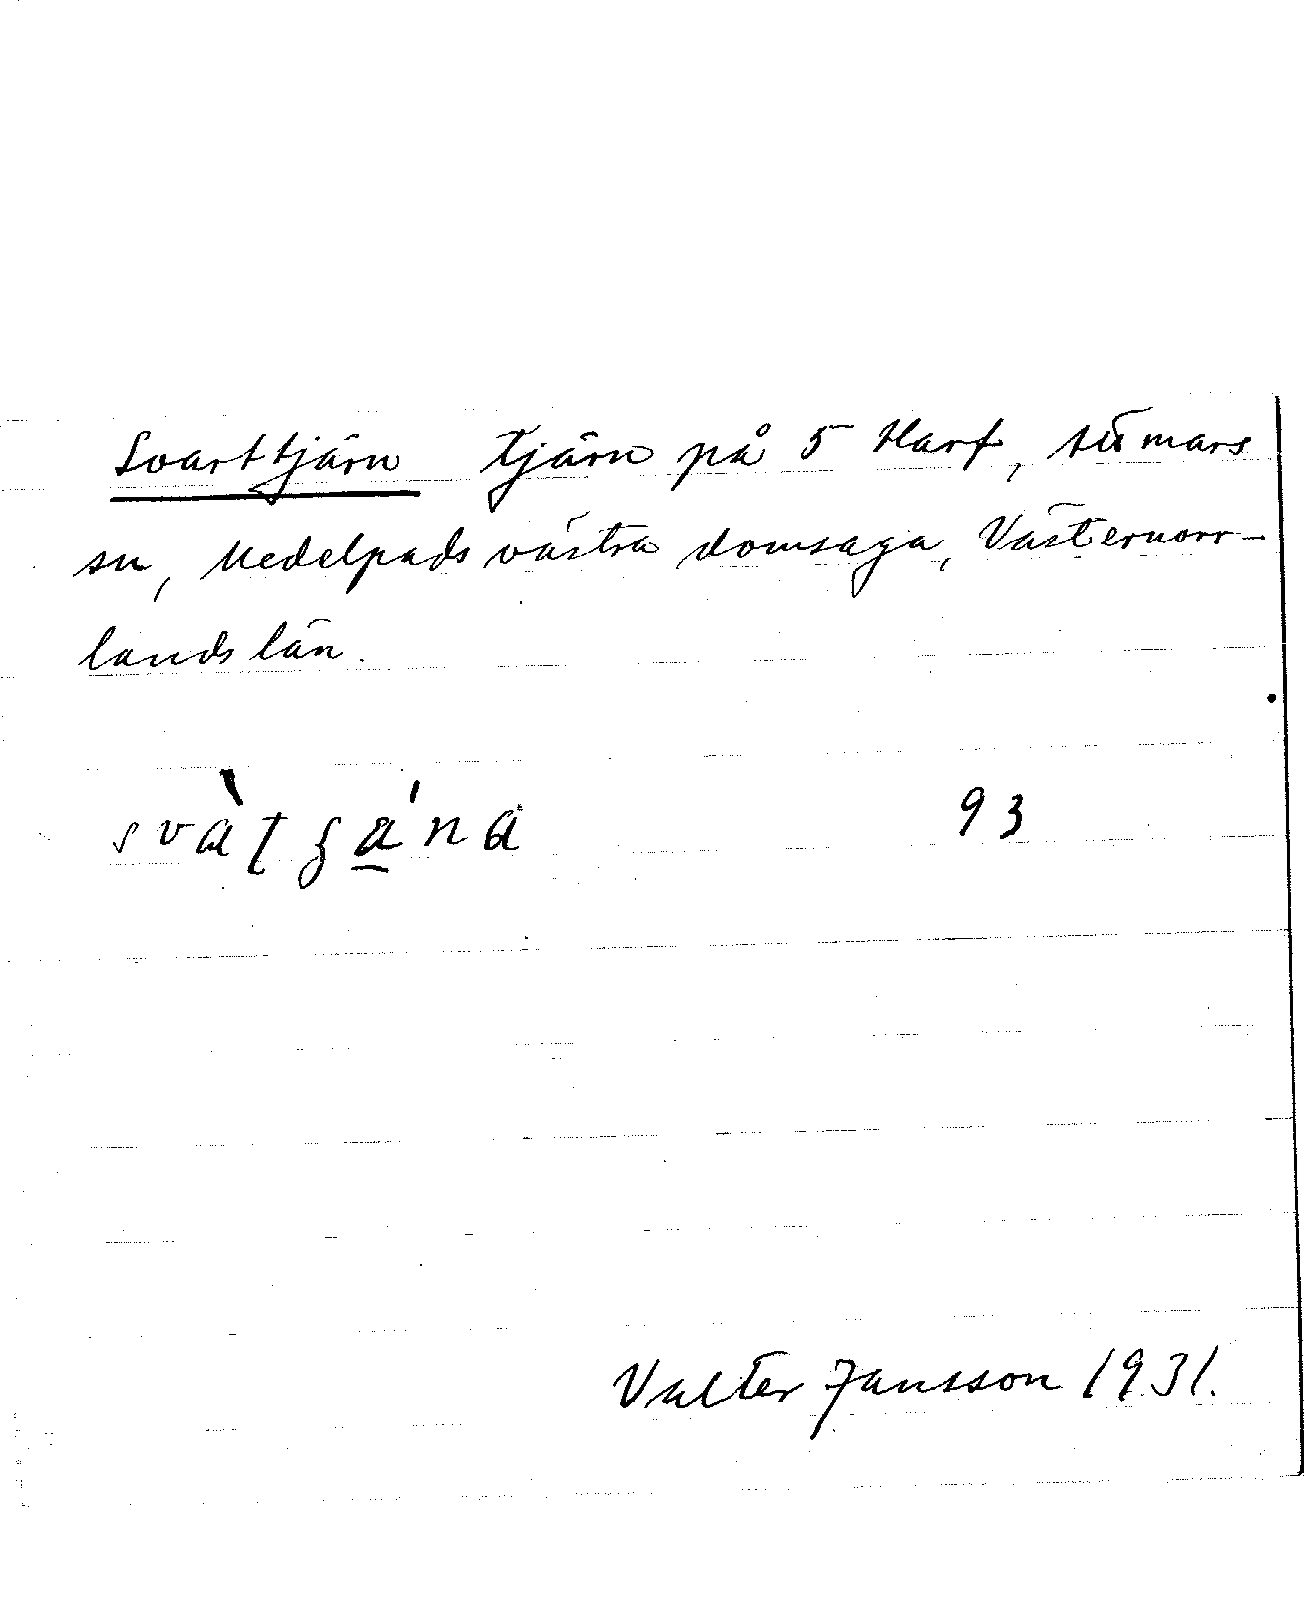 Svarttjärn tjärn på 5 Harf, Attmars
sn, Medelpads västra domsaga, Västernorr-
lands län.
93
Valter Jansson 1931.